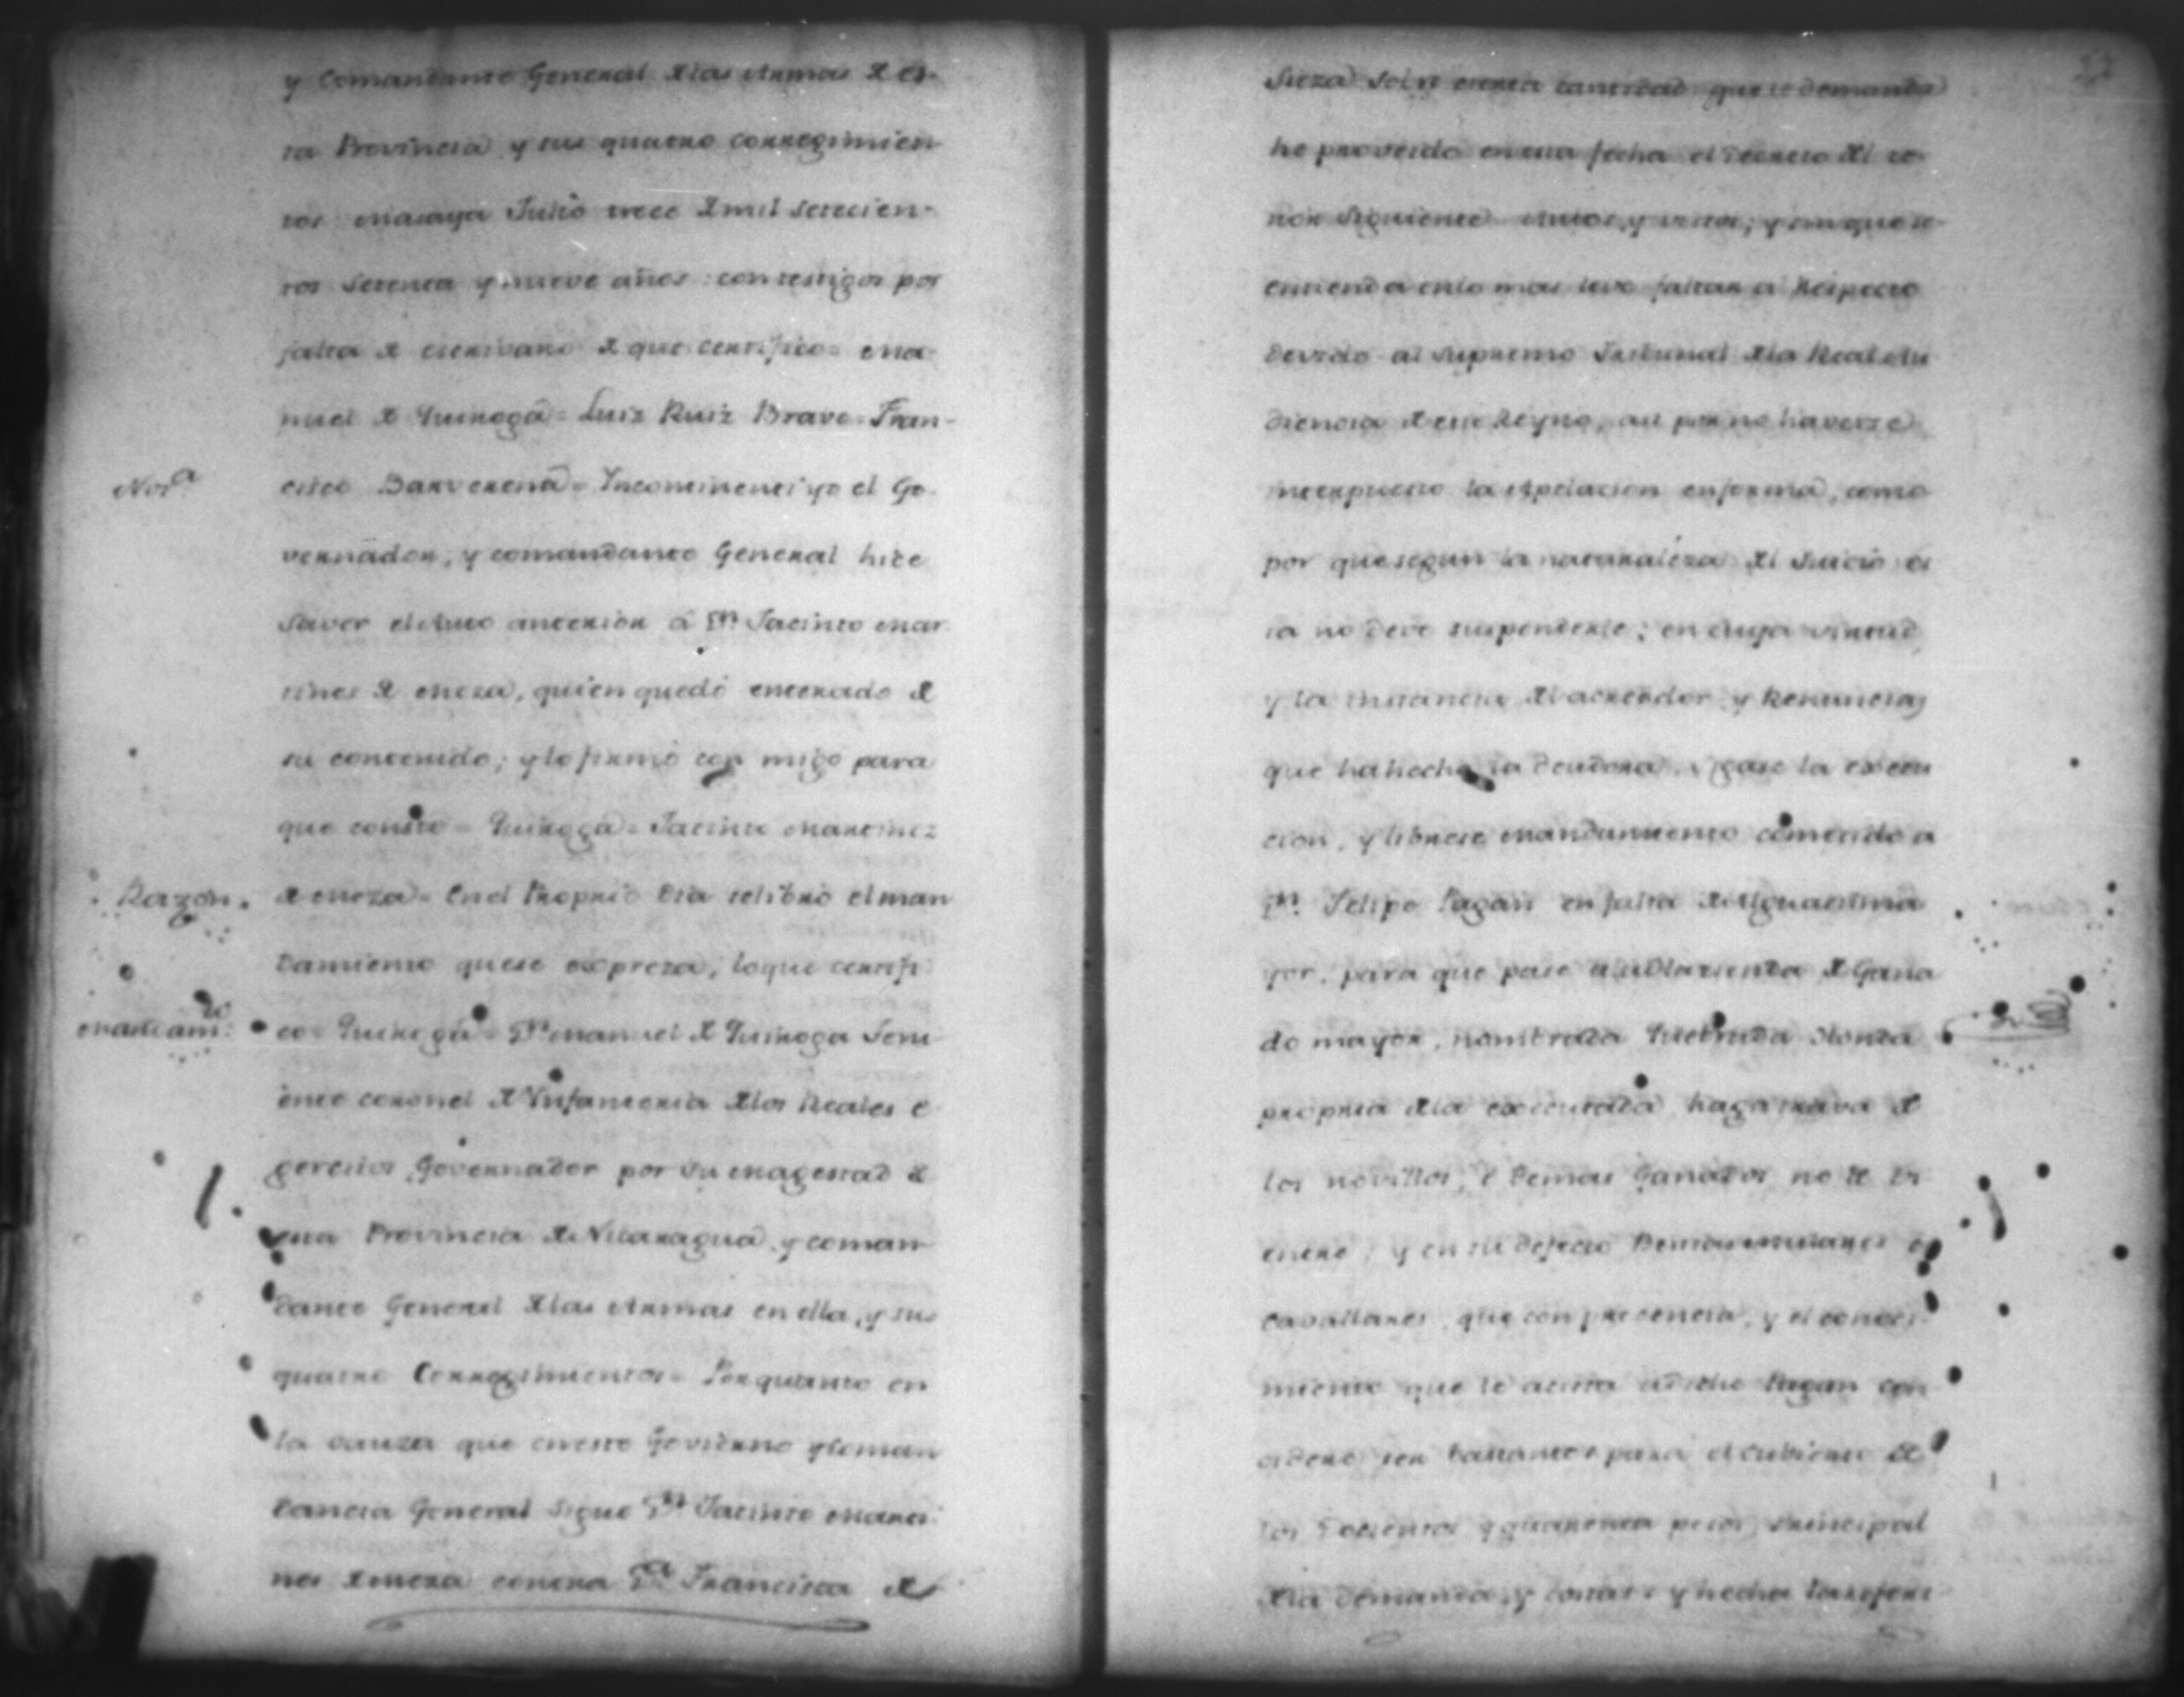 y Comandante General de las Armas de es-
ta Provincia y sus quatro corregimien
tos Masaya Julio trece de mil setecien-
tos setenta y nueve años: con testigos por
falta de escrivano de que certifico = Ma-
nuel de Quiroga = Luis Ruiz Bravo = Fran-
Notª
cisco Barverena = Yncontinenti yo el Go-
vernador, y comandante General hice
saver el Auto anterior á Dn. Jacinto Mar
tines de Meza, quien quedó enterado de
su contenido; y lo firmó con migo para
que conste = Quiroga = Jacinto Martinez
Razon.
de Meza = En el Proprio dia se libró el man
damiento que se expreza, lo que certifi
Mandamto.
co = Quiroga = Dn Manuel de Quiroga Teni
ente coronel de Ynfanteria de los Reales e
gercitos, Governador por Su Magestad de
esta Provincia de Nicaragua, y coman
dante General de las Armas en ella, y sus
quatro Corregimientos = Por quanto en
la cauza que en este Govierno y Coman
dancia General sigue Dn Jacinto Marti
nes de Meza contra Da. Francisca de
Sieza sobre cierta cantidad que le demanda
he proveido en esta fecha el Decreto del te-
nor siguiente Autos, y vistos; y sin que se
entienda en lo mas leve faltar al Respecto
devido al Supremo Tribunal de la Real Au
diencia de este Reyno, asi por no haverse
interpuesto la Apelacion en forma, como
por que segun la naturaleza del Juicio es
ta no deve suspenderse; en cuya virtud,
y la instancia del acreedor y Renuncia
que ha hecho la deudora, la execu
cion, y librese Mandamiento cometido a
Dn. Felipe Pagan en falta de Alguacil ma
yor, para que pase a la Hazienda de Gana
do mayor, nombrada Quebrada Honda
propria de la executada, haga trava de
los novillos, é demas Ganados no de vi
entre; y en su defecto demas mulares o
cavallares, que con precencia, y el conoci
miento que le acista a dicho Pagan con
cidere ser bastantes para el cubierto de
los Docientos y quarenta pesos, principal
de la demanda, y costas: y hecha la referi